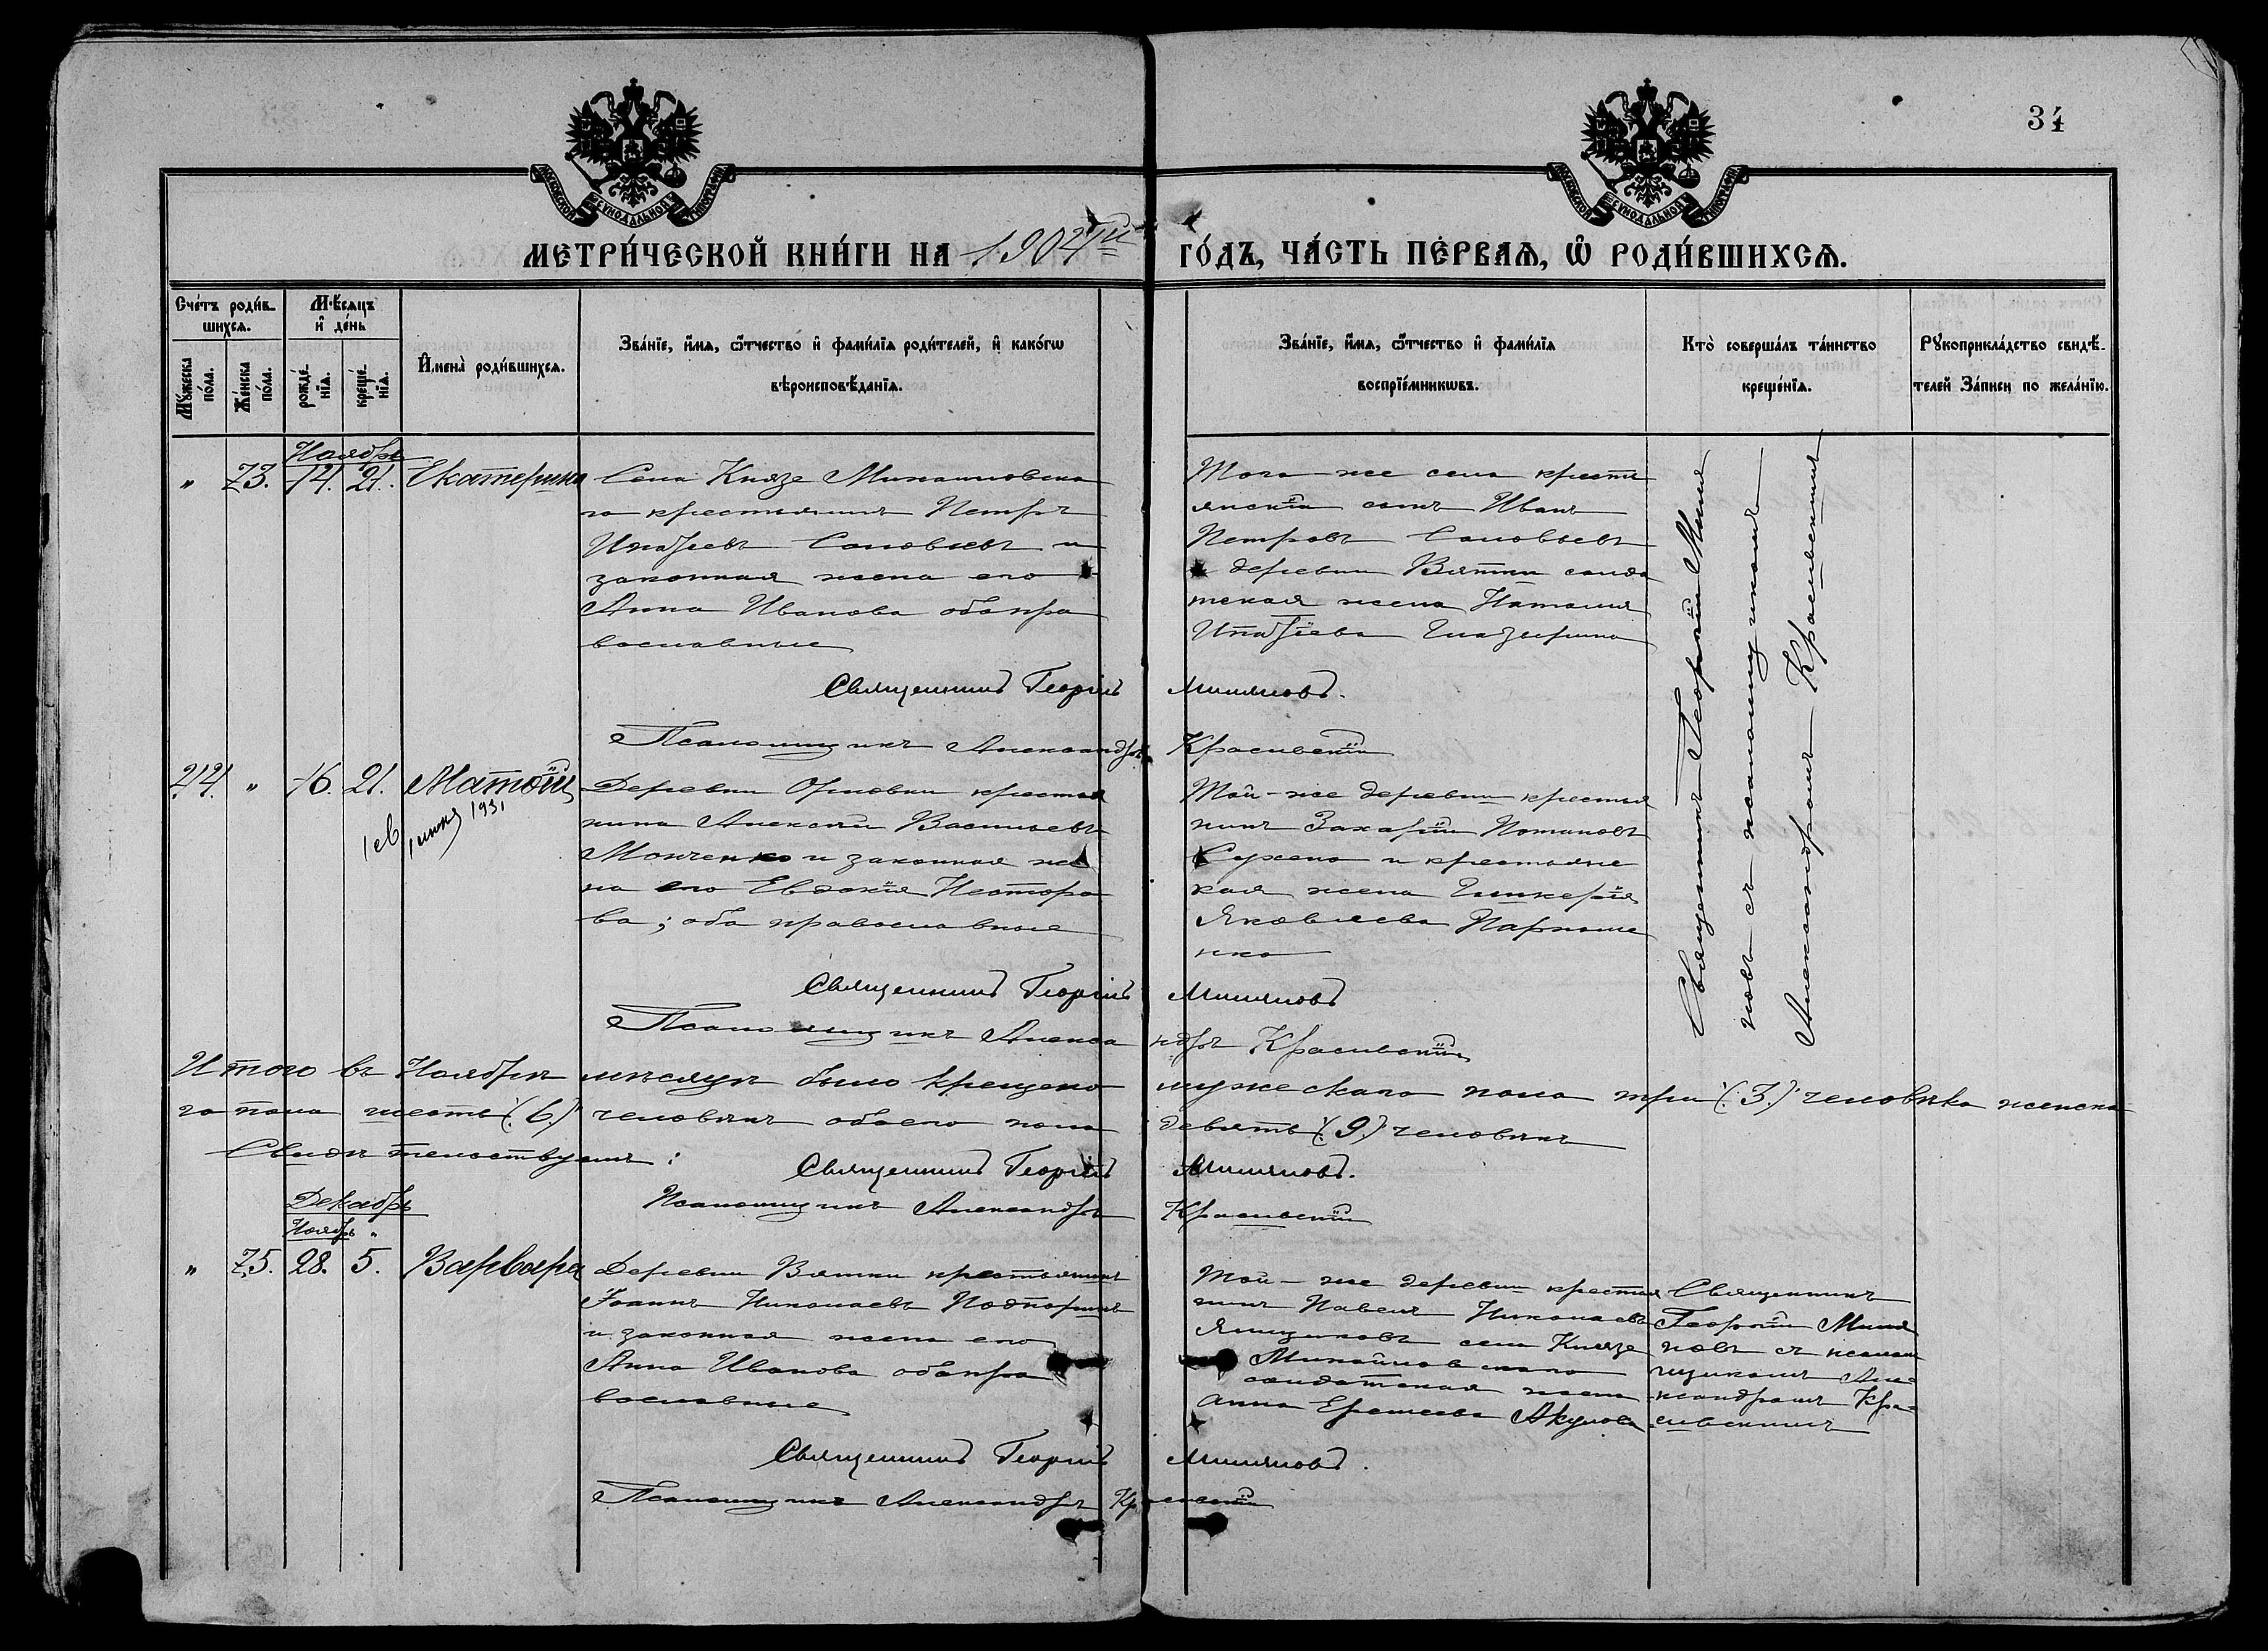 34
МЕТРИ́ЧЕСКОЙ КНИ́ГИ НА 1904ый ГО́ДЪ, ЧА́СТЬ ПЕ́РВАѦ, Ѡ҆ РОДИ́ВШИХСѦ.
Сче́тъ роди́в-
шихсѧ.
Мѣ́сѧцъ
и҆ де́нь
Мꙋ́жеска
по́ла.
Же́нска
по́ла.
рожде́-
нїѧ.
креще́-
нїѧ.
И҆мена̀ роди́вшихсѧ.
Зва́нїе, и҆́мѧ, ѻ҆́тчество и҆ фами́лїѧ роди́телей, и҆ како́гѡ
вѣроисповѣ́данїѧ.
Зва́нїе, и҆́мѧ, ѻ҆́тчество и҆ фами́лїѧ
воспрїе́мникѡвъ.
Кто̀ соверша́лъ та́инство
креще́нїѧ.
Рꙋкоприкла́дство свидѣ́-
телей За́писи по жела́нїю.
Ноябрь
" 73. 14. 21. Екатерина
Села Князе Михаиловска
го крестьянинъ Петръ
Соловьевъ и
законная жена его
Анна Иванова оба пра
вославные
Того-же села крестья
янскій сынъ Иванъ
Петровъ Соловьевъ
и деревни Вятки солда
тская жена Наталия
Священникъ Георгій Миляновъ.
Псаломщикъ Александръ Красивскій
Священникъ Георгій Миля
новъ съ псаломщикомъ
Александромъ Красивскимъ
" 16. 21. Матѳій
1931
Деревни Орловки крестья
нина Алексѣй Васильевъ
и законная же
на его Евдокія Нестеро
ва; оба православные
Той-же деревни крестья
нинъ Захарій Потаповъ
и крестьянс
кая жена Гликерія
Яковлева Пархоме
нко
Священникъ Георгій Миляновъ
Псаломщикъ Александръ Красивскій
Итого въ Ноябрѣ мѣсяцѣ было крещено мужескаго пола три (:3.:) человѣка женска
го пола шесть (:6.:) человѣкъ обоего пола девять (:9.:) человѣкъ
Свидѣтельствуемъ: Священникъ Георгій Миляновъ.
Псаломщикъ Александръ Красивскій
Декабрь
Ноябрь "
" 75. 28. 5. Варвара
Деревни Вятки крестьянинъ
Іоаннъ Николаевъ
и законная жена его
Анна Иванова оба пра
вославные
Той-же деревни крестья
нинъ Павелъ Николаевъ
села Князе
Михайловскаго
солдатская жена
Анна Еремеева Акулова
Священникъ
Георгій Миля
новъ съ псалом
щикомъ Але-
ксандромъ Кра-
сивскимъ
Священникъ Георгій Миляновъ.
Псаломщикъ Александръ Красивскій